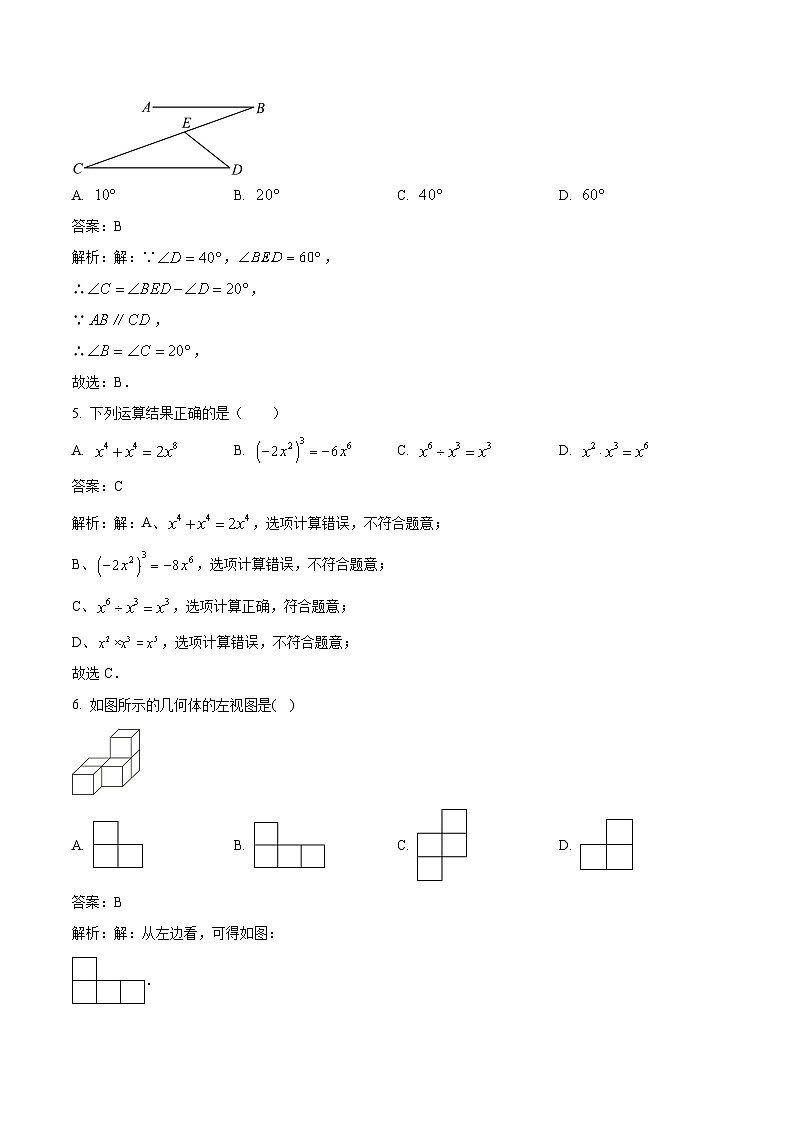 A B
E
C D
A. 10° B. 20° C. 40° D. 60°
答案：B
解析：解：∵∠D = 40°，∠BED = 60°，
∴∠C = ∠BED − ∠D = 20°，
∵ AB // CD，
∴∠B = ∠C = 20°，
故选：B.
5. 下列运算结果正确的是（　　）
A. x⁴ + x⁴ = 2x⁸ B. (−2x²)³ = −6x⁶ C. x⁶ ÷ x³ = x³ D. x² · x³ = x⁶
答案：C
解析：解：A、x⁴ + x⁴ = 2x⁴，选项计算错误，不符合题意；
B、(−2x²)³ = −8x⁶，选项计算错误，不符合题意；
C、x⁶ ÷ x³ = x³，选项计算正确，符合题意；
D、x² ×x³ = x⁵，选项计算错误，不符合题意；
故选 C.
6. 如图所示的几何体的左视图是(　)
A. B. C. D.
答案：B
解析：解：从左边看，可得如图：
.